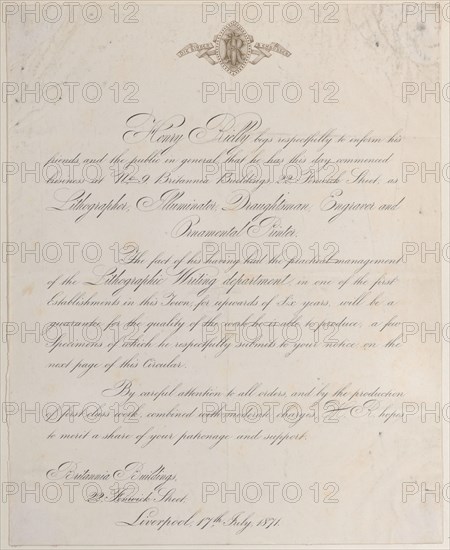 Henry Reilly begs respectfully to inform his
friends and the public in general, that he has this day commenced
business at No. 9 Britannia Buildings, 22 Fenwick Street, as
Lithographer, Illuminator, Draughtsman, Engraver and
Ornamental Printer.
The fact of his having had the practical management
of the Lithographic Writing department, in one of the first
Establishments in this Town, for upwards of Six years, will be a
guarantee for the quality of the work he is able to produce, a few
Specimens of which he respectfully submits to your notice on the
next page of this Circular.
By careful attention to all orders, and by the production
of first class work, combined with moderate charges, H R. hopes
to merit a share of your patronage and support.
Britannia Buildings,
22 Fenwick Street,
Liverpool, 17th July, 1871.